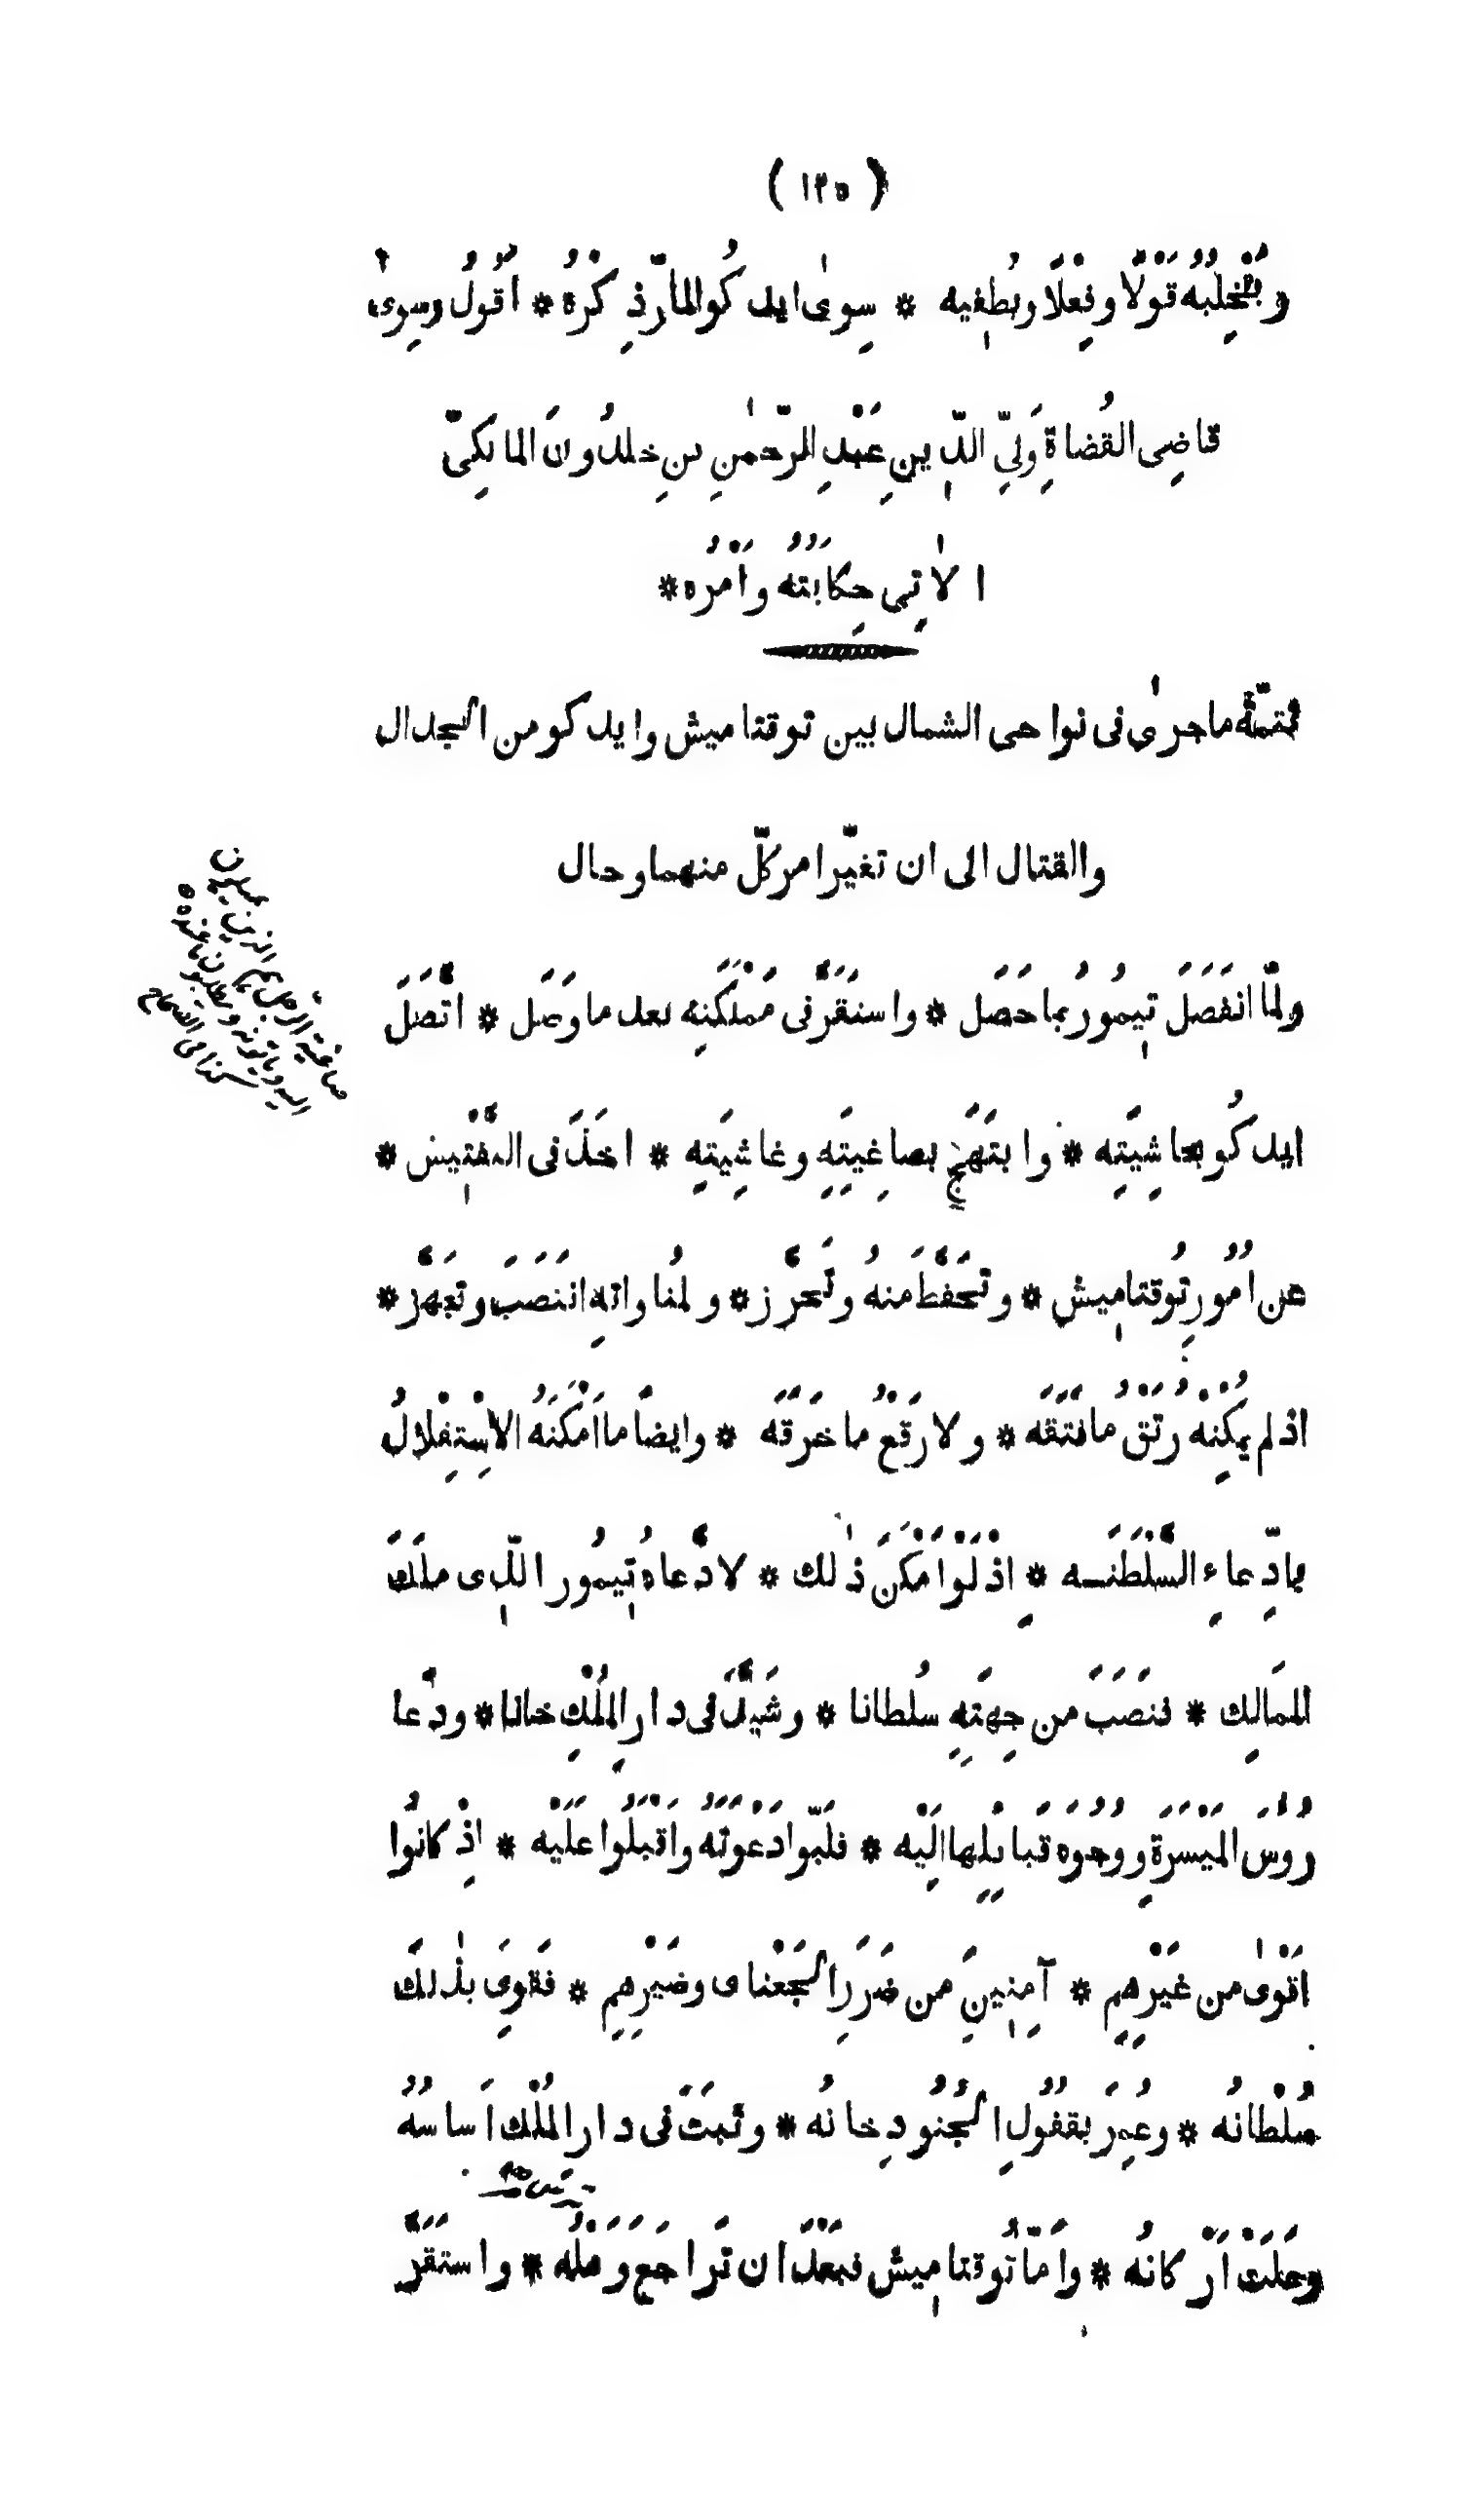 ( ١٢٥ )
ويَخْلِبُهُ قَوْلًا وفِعْلًا ويُطغيه * سِوىٰ ايد كُو المارِّ ذِكْرُهُ * اَقُولُ وسِوىٰ
قاضِى القُضاةِ وَلِيِّ الدِّينِ عَبْدِ الرّحمٰنِ بنِ خلدُونَ المالِكِىّ
الاٰتِى حِكايَتُهُ واَمْرُه *
تتمّة ما جرىٰ فى نواحى الشمال بين توقتاميش وايد كو من الجدال
والقتال الى ان تغيّر امر كلّ منهما وحال
ولمّا انفَصَلَ تِيمُورُ بما حَصَل * واستَقَرَّ فى مَمْلَكَتِه بعد ما وَصَل * اتَّصَلَ
ايد كُو بحاشِيَتِه * وابتَهَجَ بصاغِيَتِهِ وغاشِيَتِهِ * اخَذَ فى التفتيش *
عن اُمُورِ تُوقتاميش * وتحَفَّظَ منهُ وتَحَرَّز * ولمُناواتِهِ انتَصَبَ وتجَهَّز *
اذ لم يُمكِنْهُ رَتْقُ ما فَتَقَه * ولا رَقْعُ ما خَرَقَه * وايضًا ما اَمْكَنَهُ الاِسْتِقْلالُ
بادِّعاءِ السَّلْطَنَه * اِذْ لَوْ اَمْكَنَ ذٰلك * لادَّعاهُ تِيمُور الّذِى ملَكَ
المَمالِك * فنَصَبَ من جِهَتِهِ سُلطانا * وشَيَّدَ فى دارِ المُلْكِ خانا * ودَعا
رُوُسَ المَيْسَرَةِ ووُجُوهَ قَبايِلِها اِلَيْه * فلَبَّوا دَعْوَتَهُ واَقْبَلُوا عَلَيْه * اِذْ كانُوا
اَقْوىٰ من غَيْرِهِم * آمِنِينَ من ضَرَرِ الجَغْتاى وضَيْرِهِم * فقَوِىَ بذٰلكَ
سُلْطانُه * وعُمِرَ بقُفُولِ الجُنُودِ خانُه * وثبَتَ فى دار المُلْكِ اَساسُهُ
وعَلَتْ اَرْكانُه * واَمّا تُوقتاميش فبَعْدَ ان تَراجَعَ وَهَلُه * واستَقَرَّ